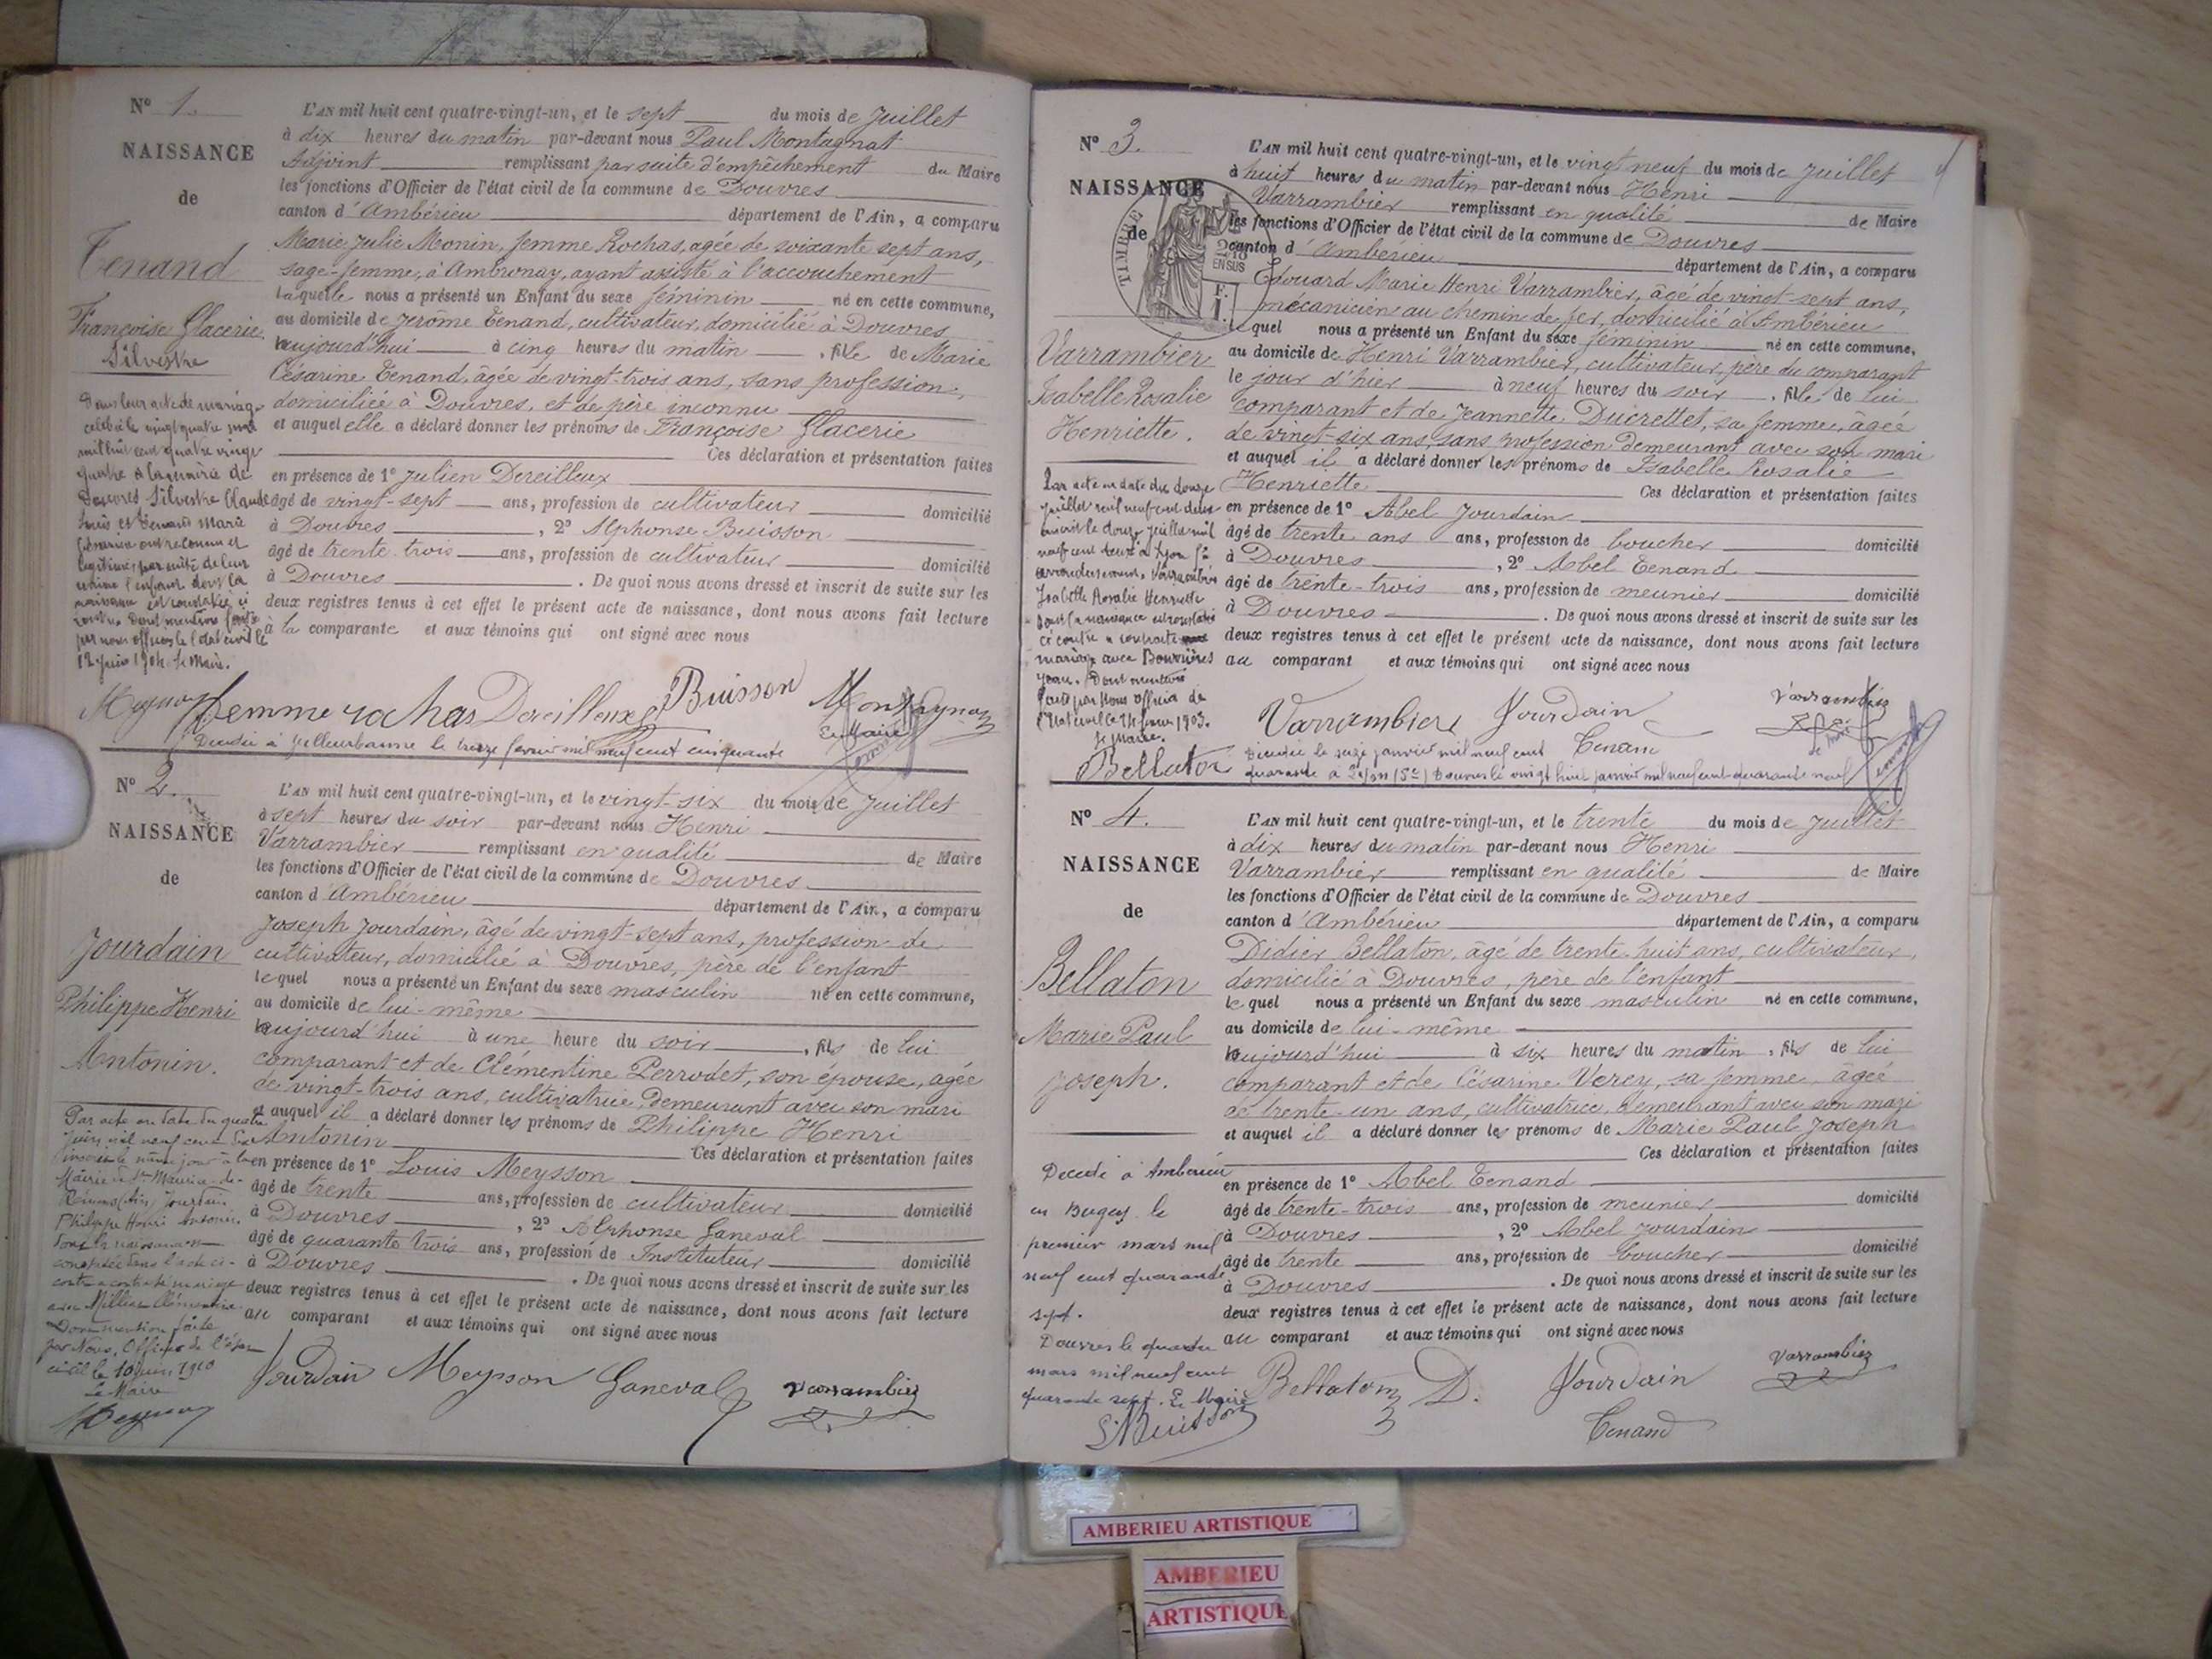 N° 1.
NAISSANCE
de
Tenand
Françoise Glacerie
Silvestre
L'AN mil huit cent quatre-vingt-un, et le sept du mois de Juillet
à dix heures du matin par-devant nous Paul Montagnat
Adjoint remplissant par suite d'empêchement du Maire
les fonctions d'Officier de l'état civil de la commune de Douvres
canton d'Ambérieu département de l'Ain, a comparu
Marie Julie Monin, femme Rochas, agée de soixante sept ans,
sage-femme, à Ambronay, ayant assisté à l'accouchement
laquelle nous a présenté un Enfant du sexe féminin né en cette commune,
au domicile de Jérôme Tenand, cultivateur, domicilié à Douvres
aujourd'hui à cinq heures du matin, fille de Marie
Césarine Tenand, âgée de vingt-trois ans, sans profession,
domiciliée à Douvres, et de père inconnu
et auquel elle a déclaré donner les prénoms de Françoise Glacerie
Ces déclaration et présentation faites
en présence de 1° Julien Dereilleux
âgé de vingt-sept ans, profession de cultivateur domicilié
à Douvres, 2° Alphonse Buisson
âgé de trente-trois ans, profession de cultivateur domicilié
à Douvres. De quoi nous avons dressé et inscrit de suite sur les
deux registres tenus à cet effet le présent acte de naissance, dont nous avons fait lecture
à la comparante et aux témoins qui ont signé avec nous
Dans leur acte de mariage
célébré le vingt quatre mai
mil huit cent quatre vingt
quatre à la mairie de
Douvres Silvestre Claude
Louis et Tenand Marie
Césarine ont reconnu et
légitimé, par suite de leur
union l'enfant dont la
naissance est constatée ci
contre. Dont mention faite
par nous officier de l'état civil le
Le Maire.
femme rochas Dereilleux Buisson Montagnat
Décédée à Villeurbanne le treize février mil neuf cent cinquante
Le Maire
N° 2.
NAISSANCE
de
Jourdain
Philippe Henri
Antonin.
L'AN mil huit cent quatre-vingt-un, et le vingt-six du mois de Juillet
à sept heures du soir par-devant nous Henri
Varrambier remplissant en qualité de Maire
les fonctions d'Officier de l'état civil de la commune de Douvres
canton d'Ambérieu département de l'Ain, a comparu
Joseph Jourdain, âgé de vingt-sept ans, profession de
cultivateur, domicilié à Douvres, père de l'enfant
lequel nous a présenté un Enfant du sexe masculin né en cette commune,
au domicile de lui-même
aujourd'hui à une heure du soir, fils de lui
comparant et de Clémentine Perrodet, son épouse, agée
de vingt-trois ans, cultivatrice, demeurant avec son mari
et auquel il a déclaré donner les prénoms de Philippe Henri
Antonin Ces déclaration et présentation faites
en présence de 1° Louis Meysson
âgé de trente ans, profession de cultivateur domicilié
à Douvres, 2° Alphonse Ganeval
âgé de quarante trois ans, profession de Instituteur domicilié
à Douvres. De quoi nous avons dressé et inscrit de suite sur les
deux registres tenus à cet effet le présent acte de naissance, dont nous avons fait lecture
au comparant et aux témoins qui ont signé avec nous
Par acte en date du quatre
juin mil neuf cent dix
inscrit le même jour à la
Mairie de St Maurice-de-
Rémens (Ain) Jourdain
Philippe Henri Antonin
dont la naissance est
constatée dans l'acte ci-
contre a contracté mariage
avec Millet Clémentine
Dont mention faite
par Nous, Officier de l'état
civil le 10 juin 1910
Le Maire
Jourdain Meysson Ganeval Varrambier
N° 3.
NAISSANCE
de
TIMBRE
2/10
EN SUS
F.
1.
Varrambier
Isabelle Rosalie
Henriette.
L'AN mil huit cent quatre-vingt-un, et le vingt neuf du mois de Juillet
à huit heures du matin par-devant nous Henri
Varrambier remplissant en qualité de Maire
les fonctions d'Officier de l'état civil de la commune de Douvres
canton d'Ambérieu département de l'Ain, a comparu
Edouard Marie Henri Varrambier, âgé de vingt-sept ans,
mécanicien au chemin de fer, domicilié à Ambérieu
lequel nous a présenté un Enfant du sexe féminin né en cette commune,
au domicile de Henri Varrambier, cultivateur, père du comparant
le jour d'hier à neuf heures du soir, fille de lui
comparant et de Jeannette Ducrettet, sa femme, âgée
de vingt-six ans, sans profession demeurant avec son mari
et auquel il a déclaré donner les prénoms de Isabelle Rosalie
Henriette Ces déclaration et présentation faites
en présence de 1° Abel Jourdain
âgé de trente ans ans, profession de boucher domicilié
à Douvres, 2° Abel Tenand
âgé de trente-trois ans, profession de meunier domicilié
à Douvres. De quoi nous avons dressé et inscrit de suite sur les
deux registres tenus à cet effet le présent acte de naissance, dont nous avons fait lecture
au comparant et aux témoins qui ont signé avec nous
Par acte en date du douze
juillet mil neuf cent deux
inscrit le douze juillet mil
neuf cent deux à Lyon
arrondissement, Varrambier
Isabelle Rosalie Henriette
dont la naissance est constatée
ci contre a contracté
mariage avec
Jean. Dont mention
faite par Nous officier de
l'Etat civil 1903.
le Maire.
Varrambier Jourdain Varrambier
Tenand
Décédée le seize janvier mil neuf cent
quarante à Lyon (5e) Douvres le vingt huit janvier mil neuf cent quarante neuf
Bellaton
N° 4.
NAISSANCE
de
Bellaton
Marie Paul
Joseph.
L'AN mil huit cent quatre-vingt-un, et le trente du mois de Juillet
à dix heures du matin par-devant nous Henri
Varrambier remplissant en qualité de Maire
les fonctions d'Officier de l'état civil de la commune de Douvres
canton d'Ambérieu département de l'Ain, a comparu
Didier Bellaton, âgé de trente-huit ans, cultivateur,
domicilié à Douvres, père de l'enfant
lequel nous a présenté un Enfant du sexe masculin né en cette commune,
au domicile de lui-même
aujourd'hui à six heures du matin, fils de lui
comparant et de Césarine Verey, sa femme, âgée
de trente-un ans, cultivatrice, demeurant avec son mari
et auquel il a déclaré donner les prénoms de Marie Paul Joseph
Ces déclaration et présentation faites
en présence de 1° Abel Tenand
âgé de trente-trois ans, profession de meunier domicilié
à Douvres, 2° Abel Jourdain
âgé de trente ans, profession de boucher domicilié
à Douvres. De quoi nous avons dressé et inscrit de suite sur les
deux registres tenus à cet effet le présent acte de naissance, dont nous avons fait lecture
au comparant et aux témoins qui ont signé avec nous
Décédé à Ambérieu
en Bugey le
premier mars mil
neuf cent quarante
sept.
Douvres le quatre
mars mil neuf cent
quarante sept. Le Maire
Bellaton D. Jourdain Varrambier
Tenand
AMBERIEU ARTISTIQUE
AMBERIEU
ARTISTIQUE